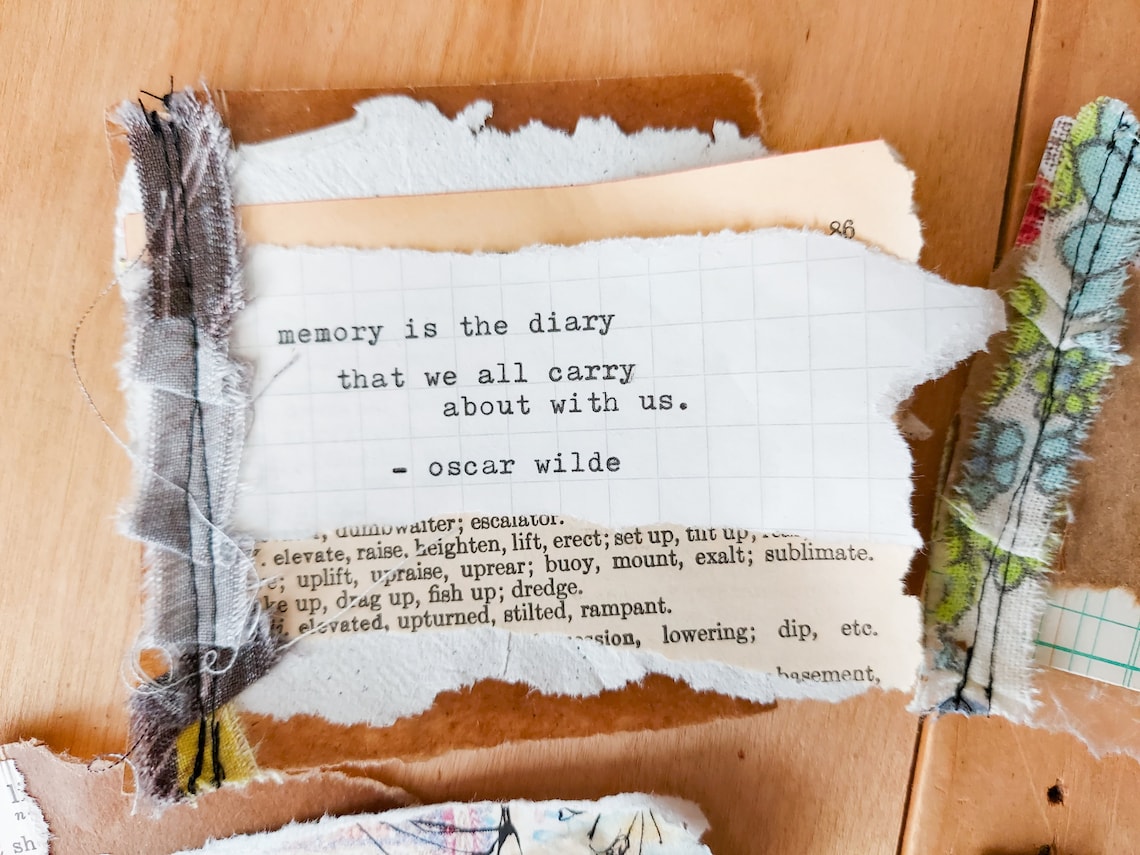 86
memory is the diary
that we all carry
about with us.
- oscar wilde
dumbwaiter; escalator.
elevate, raise, heighten, lift, erect; set up, tilt up,
uplift, upraise, uprear; buoy, mount, exalt; sublimate.
up, drag up, fish up; dredge.
elevated, upturned, stilted, rampant.
lowering; dip, etc.
l
n
sh